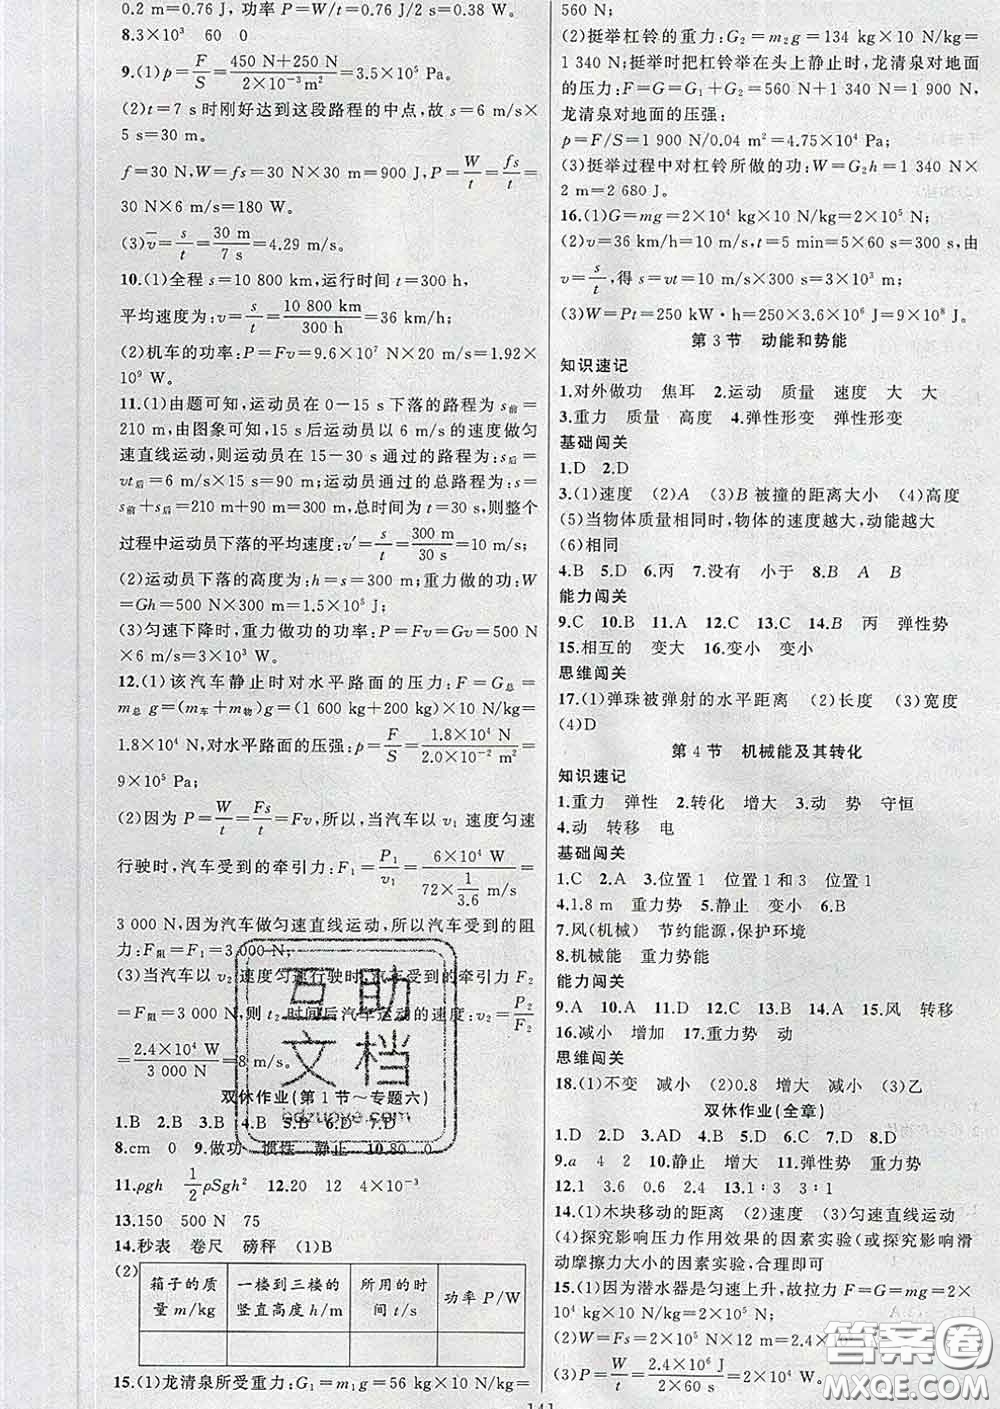 0.2 m=0.76 J，功率 P=W/t=0.76 J/2 s=0.38 W。
8.3×10³　60　0
9.(1)p=F/S=(450 N+250 N)/(2×10⁻³m²)=3.5×10⁵ Pa。
(2)t=7 s时刚好达到这段路程的中点,故 s=6 m/s×
5 s=30 m。
f=30 N,W=fs=30 N×30 m=900 J,P=W/t=fs/t=
30 N×6 m/s=180 W。
(3)v̄=s/t=30 m/7 s=4.29 m/s。
10.(1)全程 s=10 800 km,运行时间 t=300 h,
平均速度为:v=s/t=10 800 km/300 h=36 km/h。
(2)机车的功率:P=Fv=9.6×10⁷ N×20 m/s=1.92×
10⁹ W。
11.(1)由题可知,运动员在0-15 s下落的路程为s前=
210 m,由图象可知,15 s后运动员以 6 m/s的速度做匀
速直线运动,则运动员在15-30 s通过的路程为:s后
=vt后=6 m/s×15 s=90 m;运动员通过的总路程为:s=
s前+s后=210 m+90 m=300 m,总时间为t=30 s,则整个
过程中运动员下落的平均速度:v′=s/t=300 m/30 s=10 m/s;
(2)运动员下落的高度为:h=s=300 m;重力做的功:W
=Gh=500 N×300 m=1.5×10⁵ J;
(3)匀速下降时,重力做功的功率:P=Fv=Gv=500 N
×6 m/s=3×10³ W。
12.(1)该汽车静止时对水平路面的压力:F=G总=
m总 g=(m车+m物)g=(1 600 kg+200 kg)×10 N/kg=
1.8×10⁴ N,对水平路面的压强:p=F/S=(1.8×10⁴ N)/(2.0×10⁻² m²)=
9×10⁵ Pa;
(2)因为 P=W/t=Fs/t=Fv,所以,当汽车以v₁ 速度匀速
行驶时,汽车受到的牵引力:F₁=P₁/v₁=(6×10⁴ W)/(72×1/3.6 m/s)=
3 000 N,因为汽车做匀速直线运动,所以汽车受到的阻
力:F阻=F₁=3 000 N;
(3)当汽车以 v₂速度匀速行驶时,汽车受到的牵引力F₂
=F阻=3 000 N,则 t₂时间后汽车运动的速度:v₂=P₂/F₂
=(2.4×10⁴ W)/3 000 N=8 m/s。
双休作业(第1节～专题六)
1.B　2.B　3.B　4.B　5.B　6.D　7.D
8.cm　0　9.做功　惯性　静止　10.80　0
11.ρgh　1/2ρSgh²　12.20　12　4×10⁻³
13.150　500 N　75
14.秒表　卷尺　磅秤　(1)B
(2)
箱子的质量 m/kg　一楼到三楼的竖直高度 h/m　所用的时间 t/s　功率 P/W
15.(1)龙清泉所受重力:G₁=m₁g=56 kg×10 N/kg=
560 N;
(2)挺举杠铃的重力:G₂=m₂g=134 kg×10 N/kg=
1 340 N;挺举时把杠铃举在头上静止时,龙清泉对地面
的压力:F=G=G₁+G₂=560 N+1 340 N=1 900 N,
龙清泉对地面的压强:
p=F/S=1 900 N/0.04 m²=4.75×10⁴ Pa;
(3)挺举过程中对杠铃所做的功:W=G₂h=1 340 N×
2 m=2 680 J。
16.(1)G=mg=2×10⁴ kg×10 N/kg=2×10⁵ N;
(2)v=36 km/h=10 m/s,t=5 min=5×60 s=300 s,由
v=s/t,得 s=vt=10 m/s×300 s=3×10³ m;
(3)W=Pt=250 kW·h=250×3.6×10⁶ J=9×10⁸ J。
第3节　动能和势能
知识速记
1.对外做功　焦耳　2.运动　质量　速度　大　大
3.重力　质量　高度　4.弹性形变　弹性形变
基础闯关
1.D　2.D
3.(1)速度　(2)A　(3)B 被撞的距离大小　(4)高度
(5)当物体质量相同时,物体的速度越大,动能越大
(6)相同
4.B　5.D　6.丙　7.没有　小于　8.B　A　B
能力闯关
9.C　10.C　11.A　12.C　13.C　14.B　丙　弹性势
15.相互的　变大　16.变小　变小
思维闯关
17.(1)弹珠被弹射的水平距离　(2)长度　(3)宽度
(4)D
第4节　机械能及其转化
知识速记
1.重力　弹性　2.转化　增大　3.动　势　守恒
4.动　转移　电
基础闯关
1.C　2.A　3.位置1　位置1和3　位置1
4.1.8 m　重力势　5.静止　变小　6.B
7.风(机械)　节约能源,保护环境
8.机械能　重力势能
能力闯关
9.A　10.A　11.D　12.C　13.B　14.A　15.风　转移
16.减小　增加　17.重力势　动
思维闯关
18.(1)不变　减小　(2)0.8　增大　减小　(3)乙
双休作业(全章)
1.D　2.D　3.C　4.B　5.A　6.C　7.D　8.D
9.a　4　2　10.静止　增大　11.弹性势　重力势
12.1　3.6　0.6　2.4　13.1∶3　3∶1
14.(1)木块移动的距离　(2)速度　(3)匀速直线运动
(4)探究影响压力作用效果的因素实验(或探究影响滑
动摩擦力大小的因素实验,合理即可
15.(1)因为潜水器是匀速上升,故拉力 F=G=mg=2×
10⁴ kg×10 N/kg=2×10⁵ N;
(2)W=Fs=2×10⁵ N×12 m=2.4×
(3)P=W/t=(2.4×10⁶ J)/(2×60 s)=
141
互助
文档
bdzuoye.com
答案圈
MXQE.COM